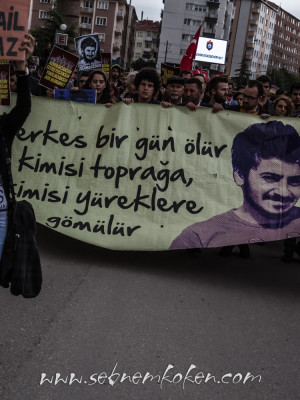 Herkes bir gün ölür
kimisi toprağa,
kimisi yüreklere
gömülür
www.sebnemkoken.com